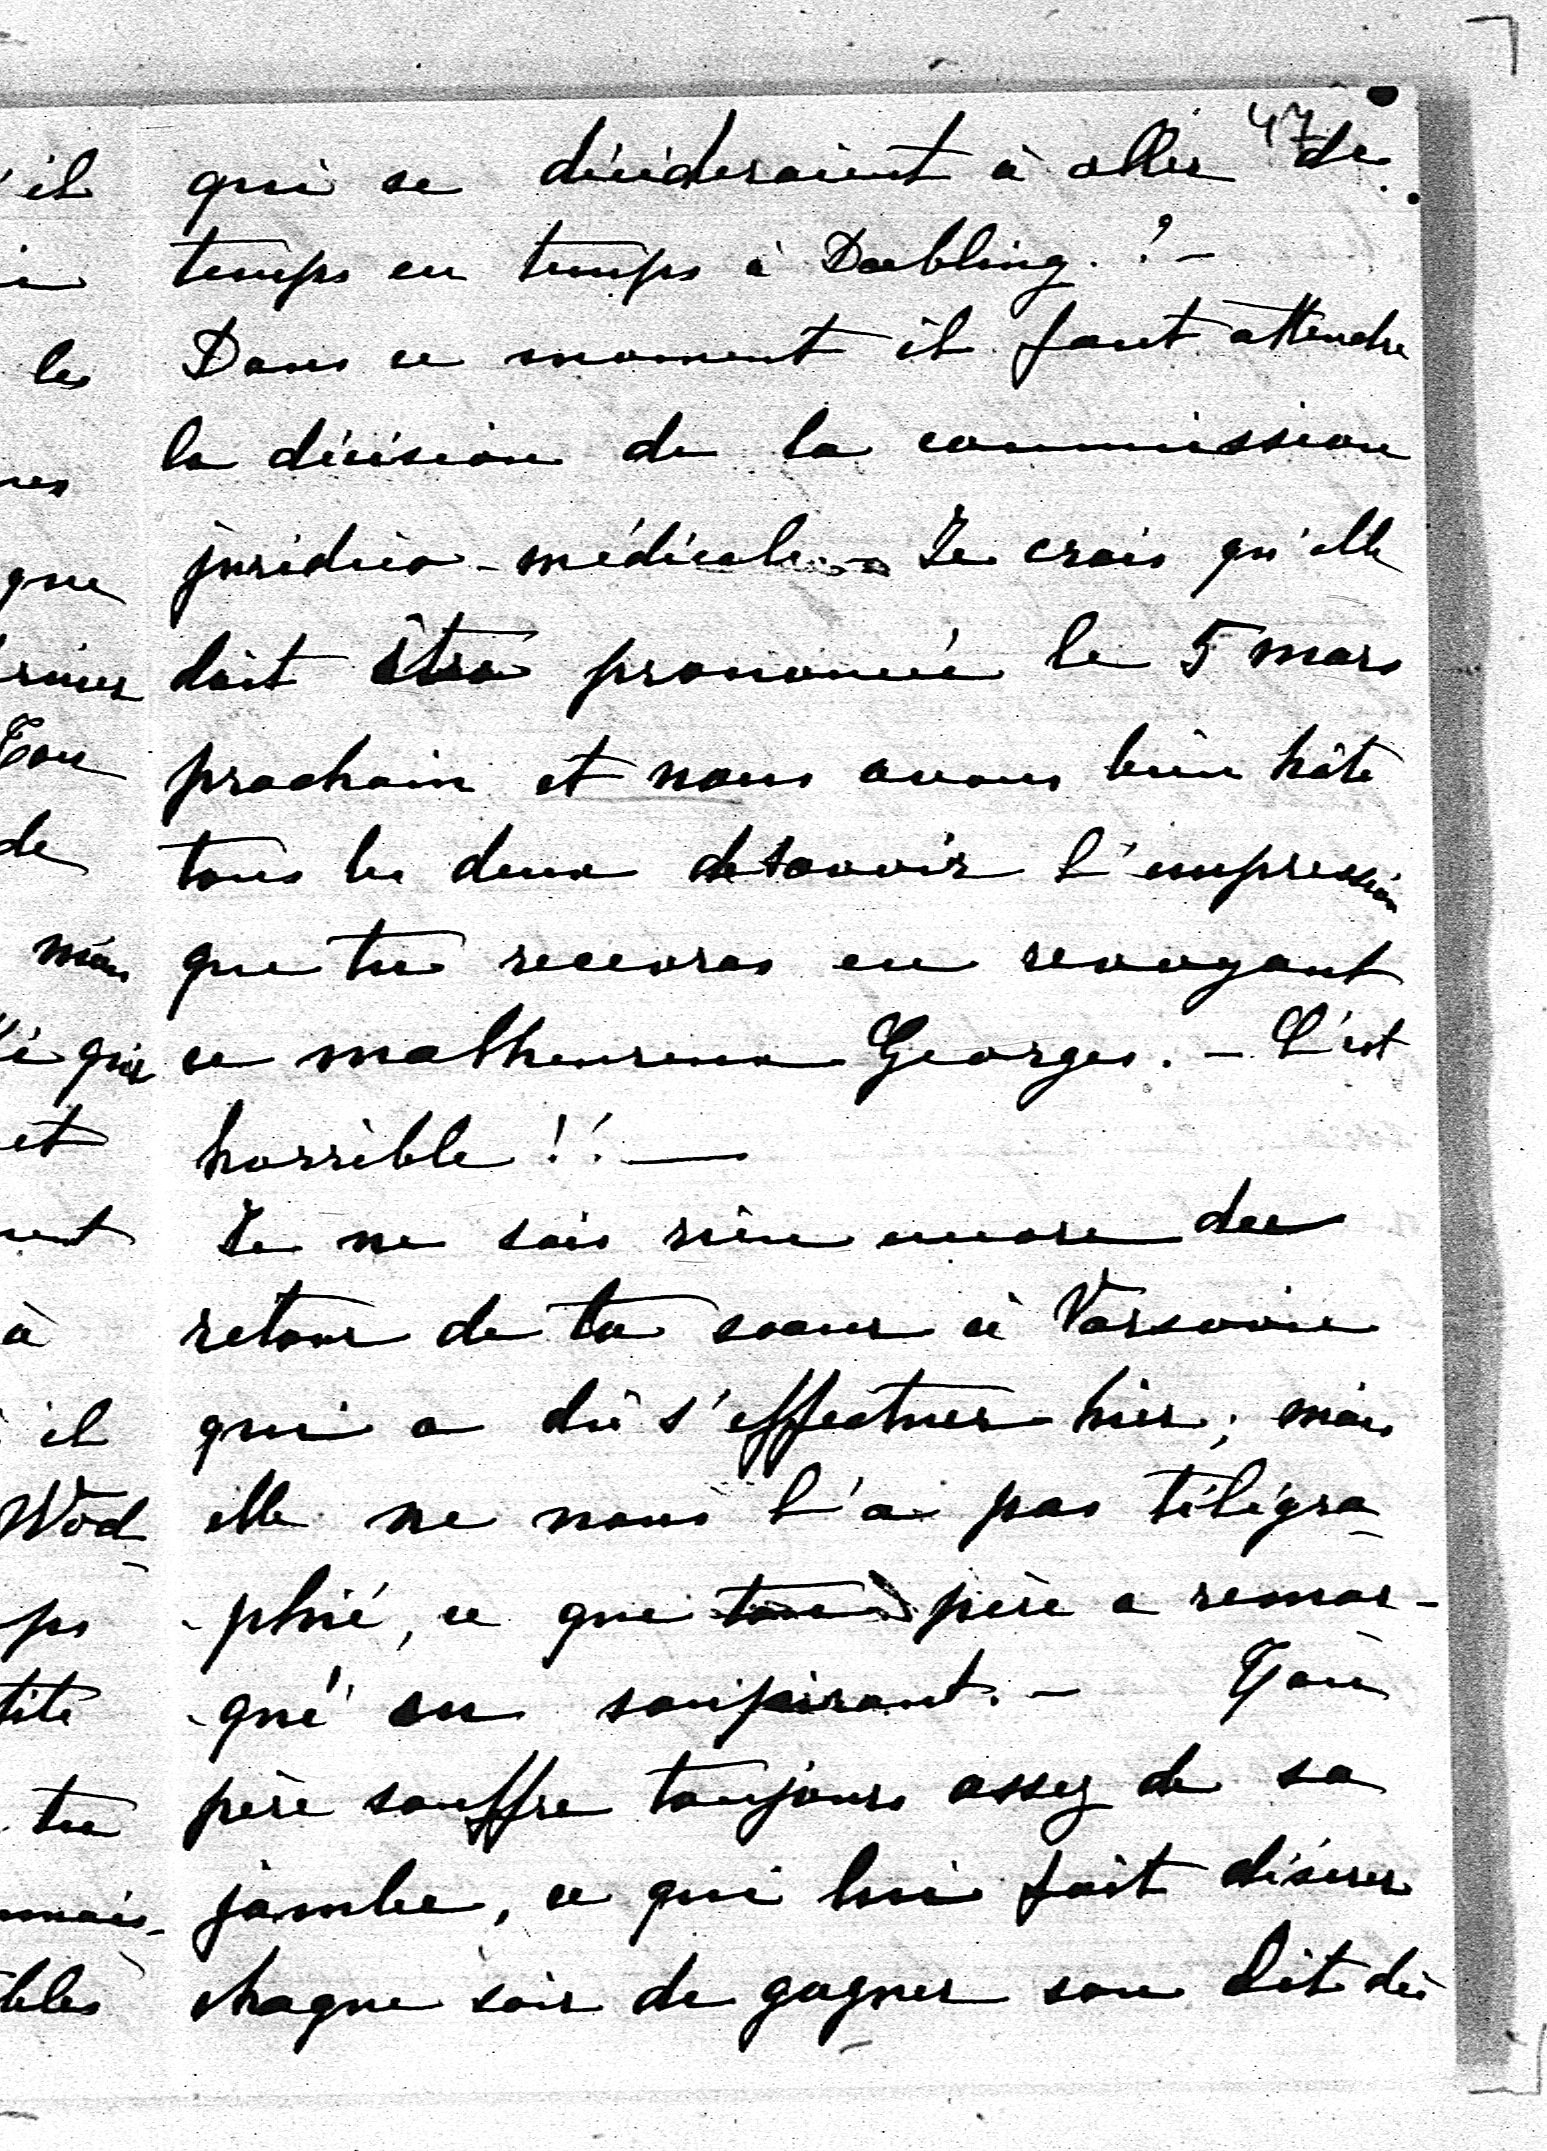 47
qui se décideraient à aller de
temps en temps à Doebling. ? -
Dans ce moment il faut attendre
la décision de la commission
juridico-médicale - Je crois qu'elle
doit être prononcée le 5 mars
prochain et nous avons bien hâte
tous les deux de savoir l'impression
que tu recevras en revoyant
ce malheureux Georges. - C'est
horrible !! —
Je ne sais rien encore du
retour de ta soeur à Varsovie
qui a dû s'effectuer hier ; mais
elle ne nous l'a pas télégra-
-phié, ce que ton père a remar-
-qué en soupirant. - Ton
père souffre toujours assez de sa
jambe, ce qui lui fait désirer
chaque soir de gagner son lit dè
il
les
que
Ton
de
et
à
il
Wod-
ps
tite
tu
bles